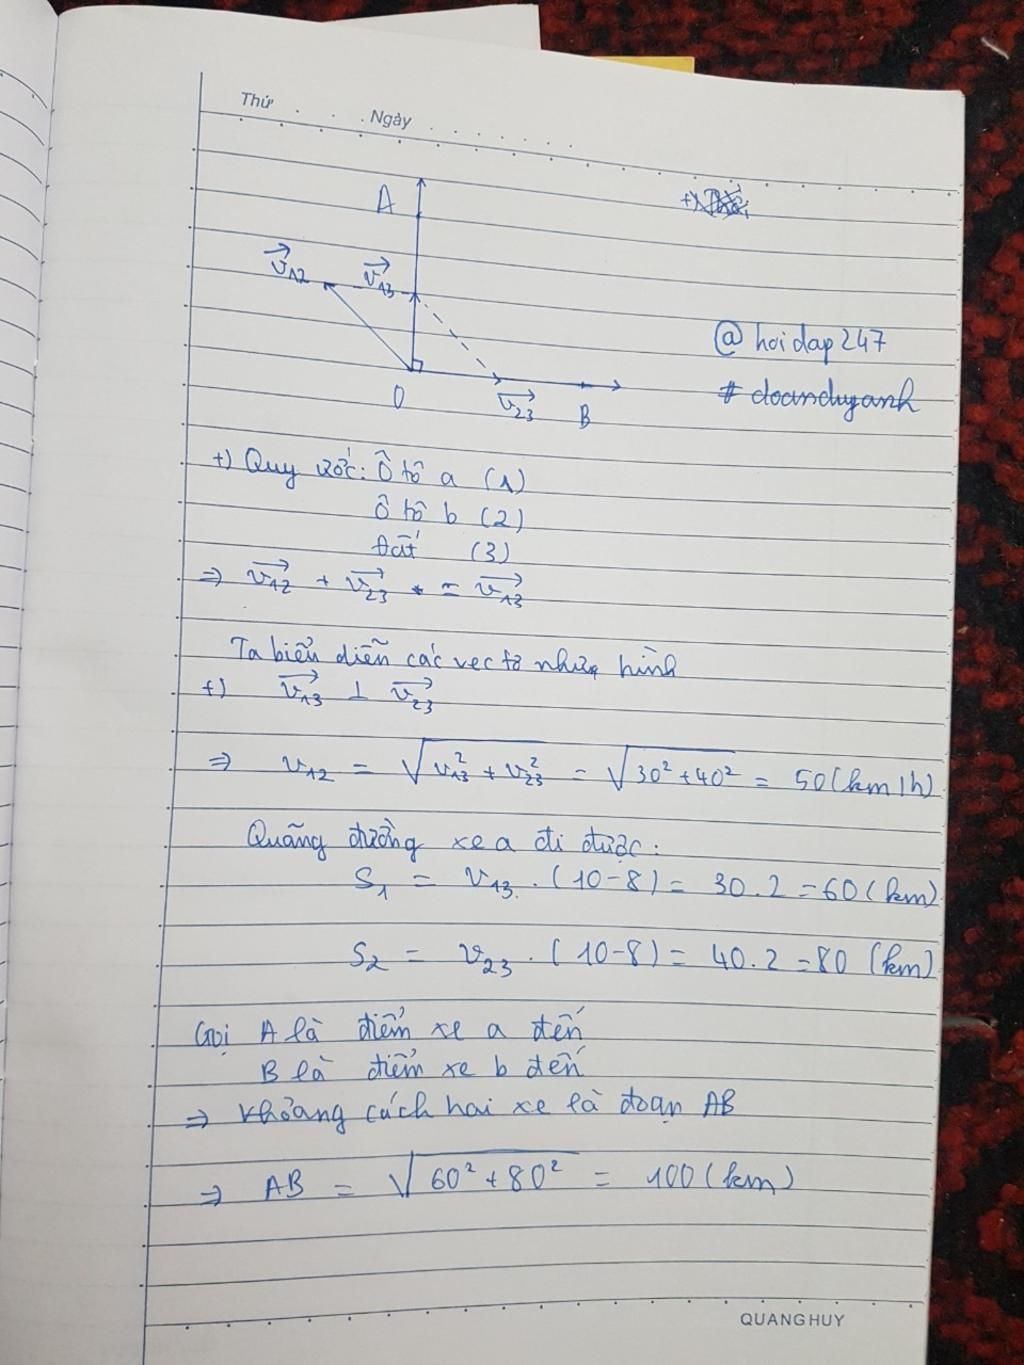 Thứ . . . Ngày . . . . . . .
A
v₁₂ v₁₃
@ hoidap247
O v₂₃ B # doanduyanh
+) Quy ước: Ô tô a (1)
Ô tô b (2)
Đất (3)
⇒ v₁₂ + v₂₃ = v₁₃
Ta biểu diễn các vec tơ như hình
+) v₁₃ ⊥ v₂₃
⇒ v₁₂ = √(v₁₃² + v₂₃²) = √(30² + 40²) = 50 (km/h)
Quãng đường xe a đi được:
S₁ = v₁₃ . (10-8) = 30 . 2 = 60 (km)
S₂ = v₂₃ . (10-8) = 40 . 2 = 80 (km)
Gọi A là điểm xe a đến
B là điểm xe b đến
⇒ Khoảng cách hai xe là đoạn AB
⇒ AB = √(60² + 80²) = 100 (km)
QUANG HUY